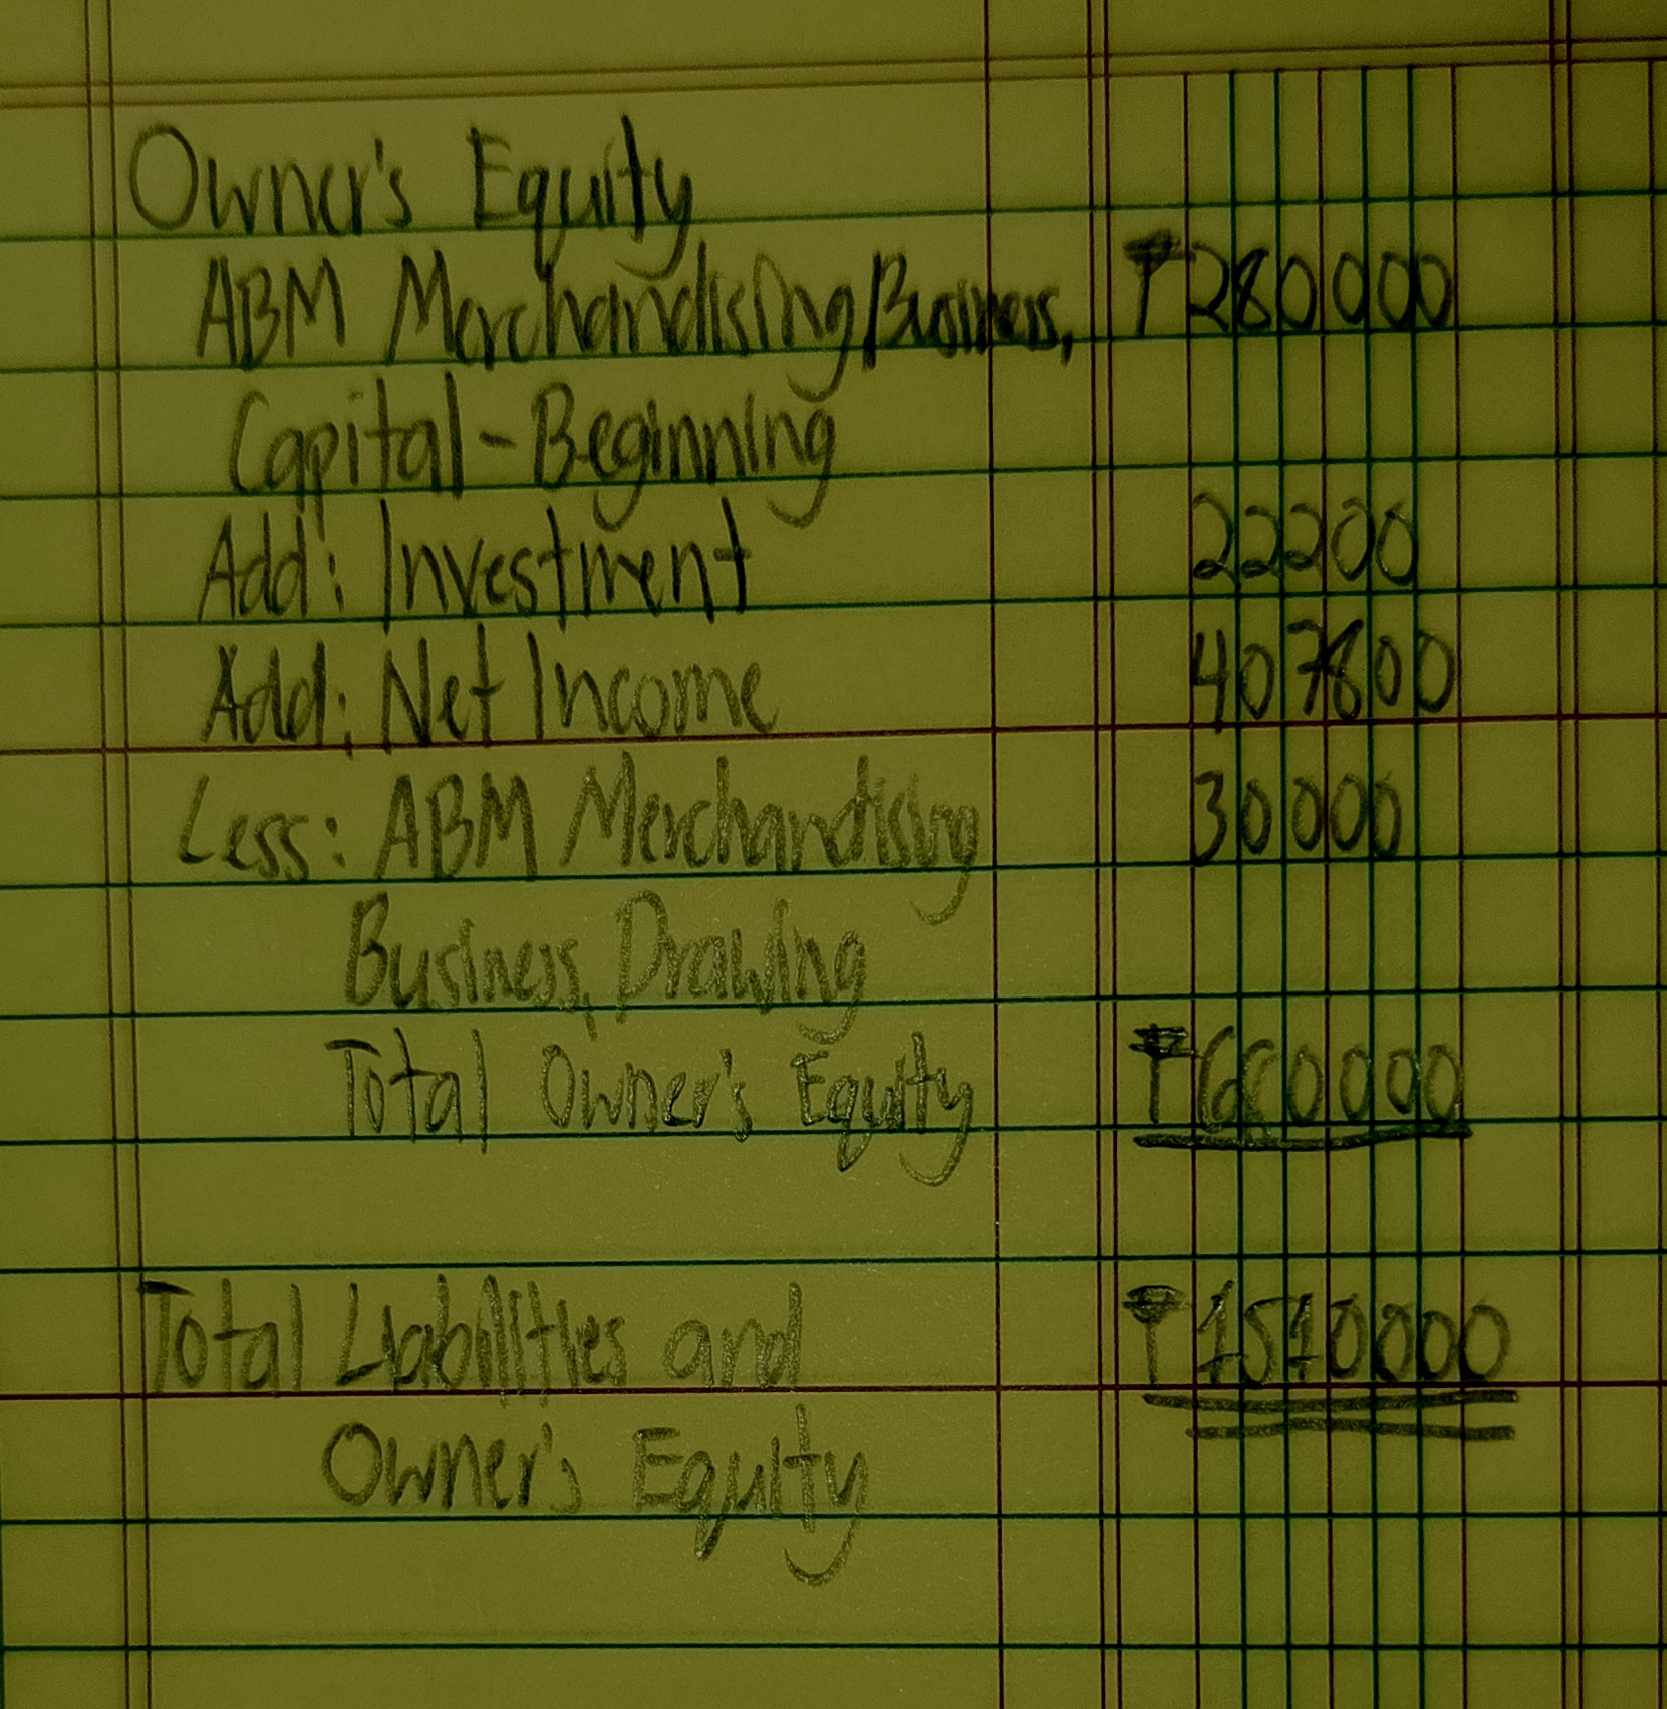 Owner's Equity
ABM Merchandising Business, ₱280000
Capital-Beginning
Add: Investment 22200
Add: Net Income 407800
Less: ABM Merchandising 30000
Business, Drawing
Total Owner's Equity ₱680000
Total Liabilities and ₱1510000
Owner's Equity